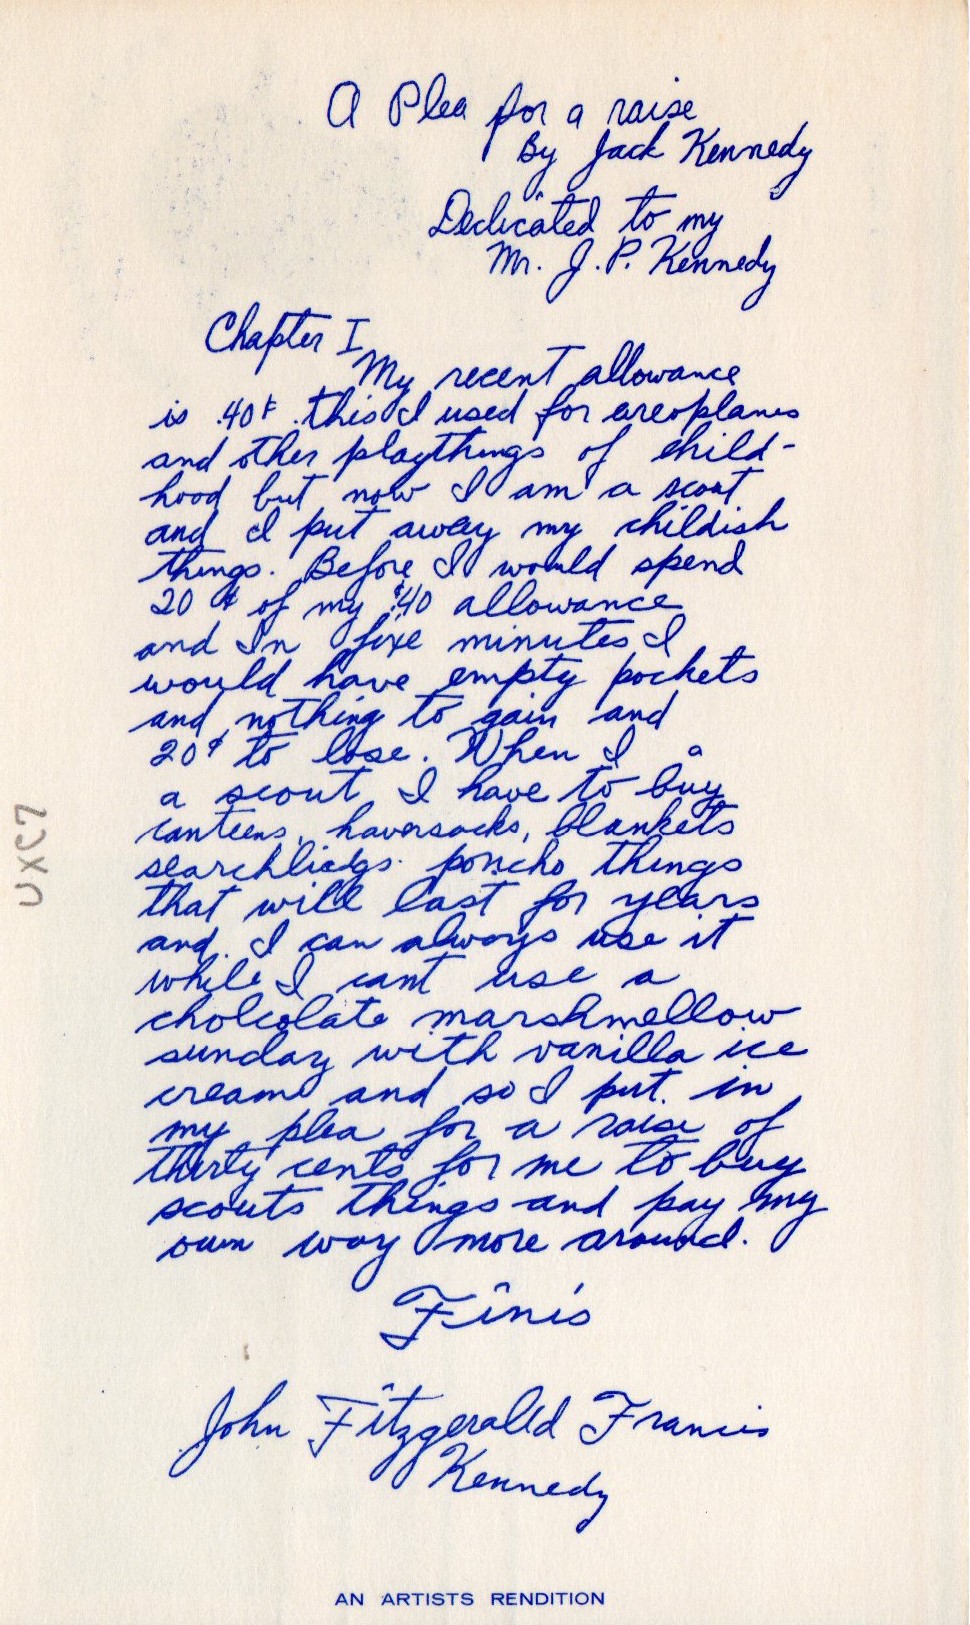 A Plea for a raise
By Jack Kennedy
Dedicated to my
Mr. J. P. Kennedy
Chapter I
My recent allowance
is .40¢. this I used for areoplanes
and other playthings of child-
hood but now I am a scout
and I put away my childish
things. Before I would spend
20¢ of my $.40 allowance
and In five minutes I
would have empty pockets
and nothing to gain and
20¢ to lose. When I a
a scout I have to buy
canteens, haversacks, blankets
searchlidgs poncho things
that will last for years
and I can always use it
while I cant use a
cholcolate marshmellow
sunday with vanilla ice
cream and so I put in
my plea for a raise of
thirty cents for me to buy
scouts things and pay my
own way more around.
Finis
John Fitzgerald Francis
Kennedy
AN ARTISTS RENDITION
UXC7